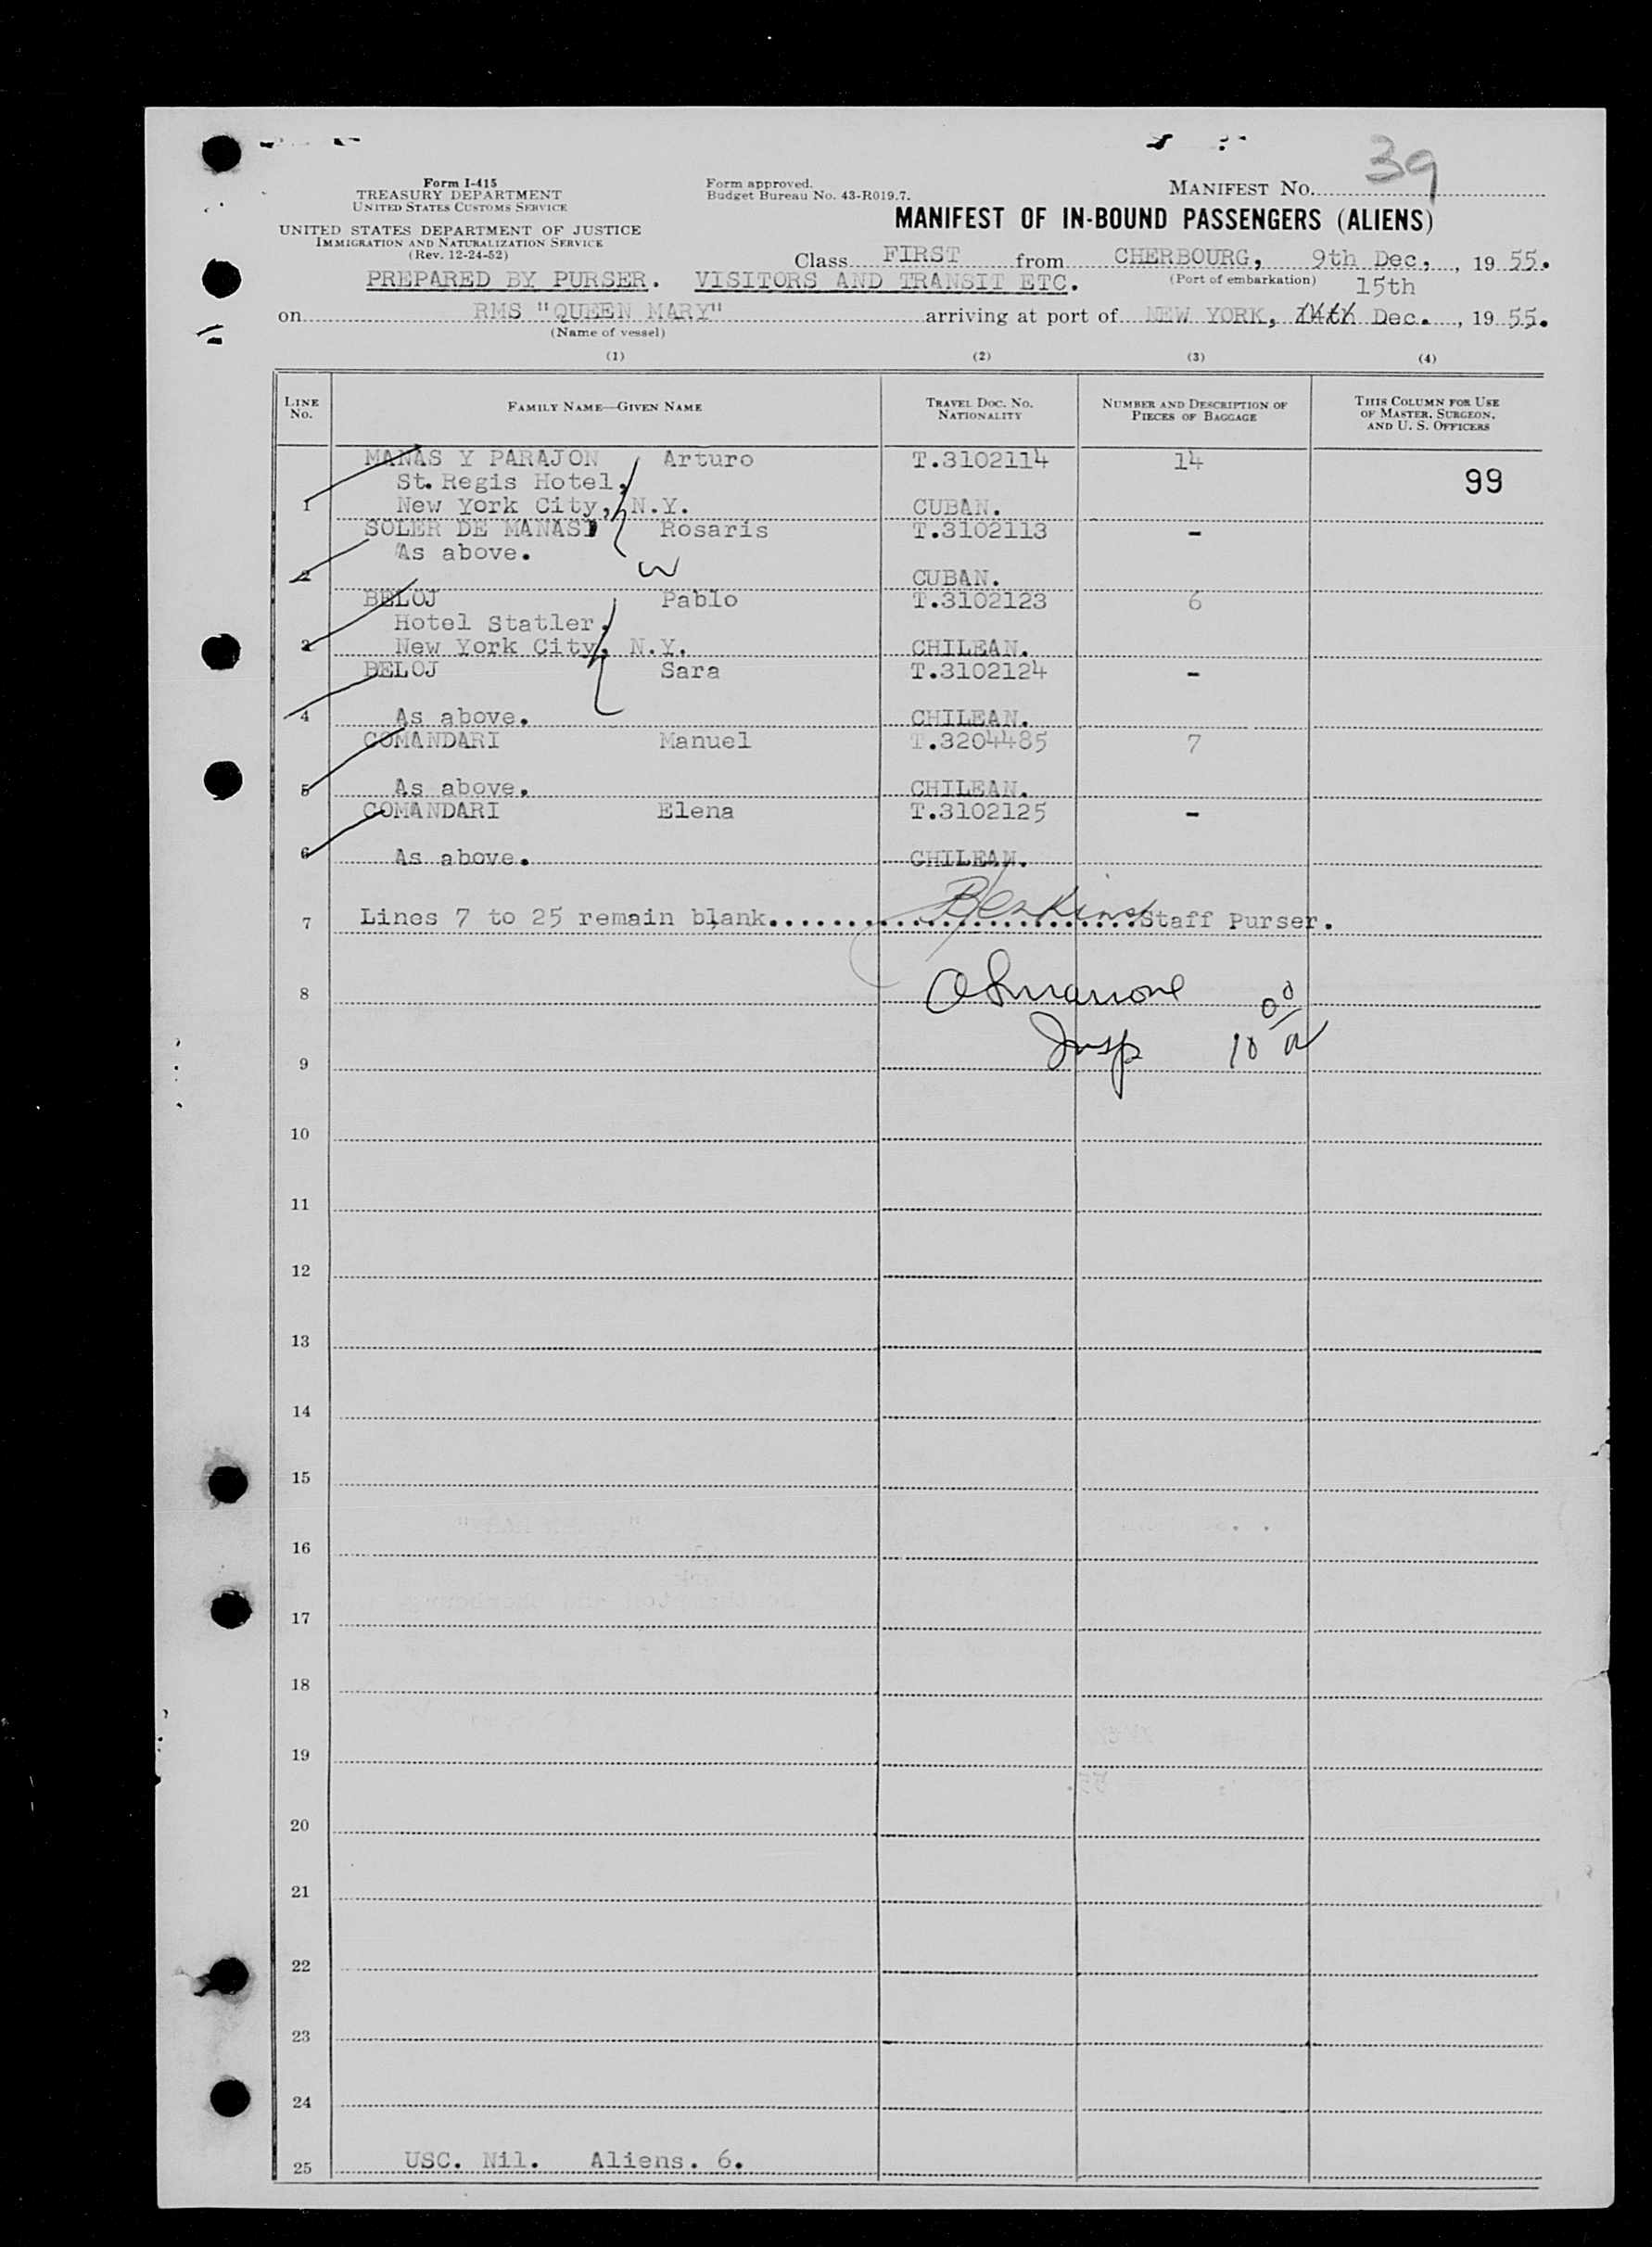 Form I-415
TREASURY DEPARTMENT
UNITED STATES CUSTOMS SERVICE
UNITED STATES DEPARTMENT OF JUSTICE
IMMIGRATION AND NATURALIZATION SERVICE
(Rev. 12-24-52)
Form approved.
Budget Bureau No. 43-R019.7.
MANIFEST NO. 39
MANIFEST OF IN-BOUND PASSENGERS (ALIENS)
Class FIRST from CHERBOURG, 9th Dec., 19 55.
PREPARED BY PURSER. VISITORS AND TRANSIT ETC. (Port of embarkation) 15th
on RMS "QUEEN MARY" arriving at port of NEW YORK, 14th Dec., 19 55.
(Name of vessel)
(1) (2) (3) (4)
LINE No. FAMILY NAME—GIVEN NAME TRAVEL DOC. NO. NATIONALITY NUMBER AND DESCRIPTION OF PIECES OF BAGGAGE THIS COLUMN FOR USE OF MASTER, SURGEON, AND U. S. OFFICERS
MANAS Y PARAJON Arturo T.3102114 14
St. Regis Hotel, 99
1 New York City, N.Y. CUBAN.
SOLER DE MANAS Rosaris T.3102113 -
As above.
2 CUBAN.
BELOJ Pablo T.3102123 6
Hotel Statler,
3 New York City, N.Y. CHILEAN.
BELOJ Sara T.3102124 -
4 As above. CHILEAN.
COMANDARI Manuel T.3204485 7
5 As above. CHILEAN.
COMANDARI Elena T.3102125 -
6 As above. CHILEAN.
7 Lines 7 to 25 remain blank. Staff Purser.
8
Insp 10 00 a
9
10
11
12
13
14
15
16
17
18
19
20
21
22
23
24
25 USC. Nil. Aliens. 6.